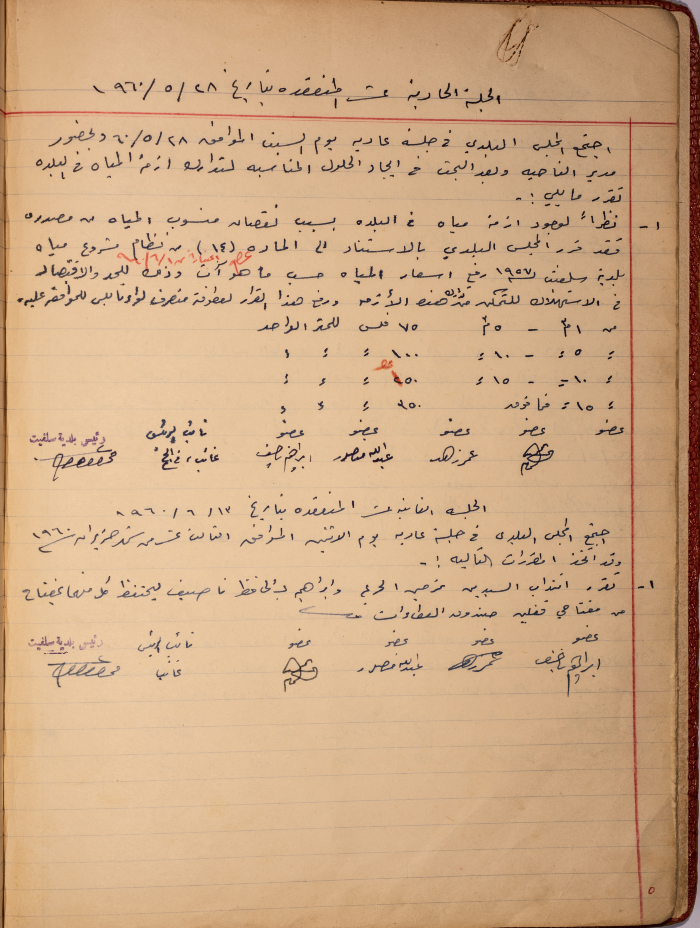 الجلسة الحادية عشر المنعقده بتاريخ ٢٨ / ٥ / ١٩٦٠
اجتمع المجلس البلدي في جلسة عاديه يوم السبت الموافق ٢٨ / ٥ / ٦٠ وبحضور
مدير الناحيه وبعد البحث في ايجاد الحلول المناسبه لتدارك ازمة المياه في البلده
تقرر ما يلي :-
١ - نظراً لوجود ازمة مياه في البلده بسبب نقصان منسوب المياه من مصدره
فقد قرر المجلس البلدي بالاستناد الى الماده (١٤) من نظام مشروع مياه
اعتباراً من ١ / ٦ / ٩٦٠
بلدية سلفيت لسنة ١٩٥٧ رفع اسعار المياه حسب ما هو آت وذلك للحد والاقتصاد
في الاستهلاك للتمكن من تدارك هذه الأزمه ورفع هذا القرار لعطوفة متصرف لواء نابلس للموافقه عليه.
من ١م٣ - ٥م٣ ٧٥ فلس للمتر الواحد
ء ٥ ء - ١٠ ء ١٠٠ ء ء ء
ء ١٠ ء - ١٥ ء ٢٥٠ ء ء ء
ء ١٥ ء فما فوق ٣٥٠ ء ء ء
عضو عضو عضو عضو عضو نائب الرئيس رئيس بلدية سلفيت
عبدالله منصور ابراهيم ناصيف غائب، في الحج
الجلسه الثانية عشر المنعقده بتاريخ ١٣ / ٦ / ١٩٦٠
اجتمع المجلس البلدي في جلسة عاديه يوم الاثنين الموافق الثالث عشر من شهر حزيران سنة ١٩٦٠
وقد اتخذ المقررات التاليه :-
١ - تقرر انتداب السيدين وابراهيم عبدالحافظ ناصيف ليحتفظ كل منهما بمفتاح
من مفتاحي قفلين صندوق العطاءات
عضو عضو عضو عضو نائب الرئيس رئيس بلدية سلفيت
ابراهيم ناصيف عبدالله منصور غائب